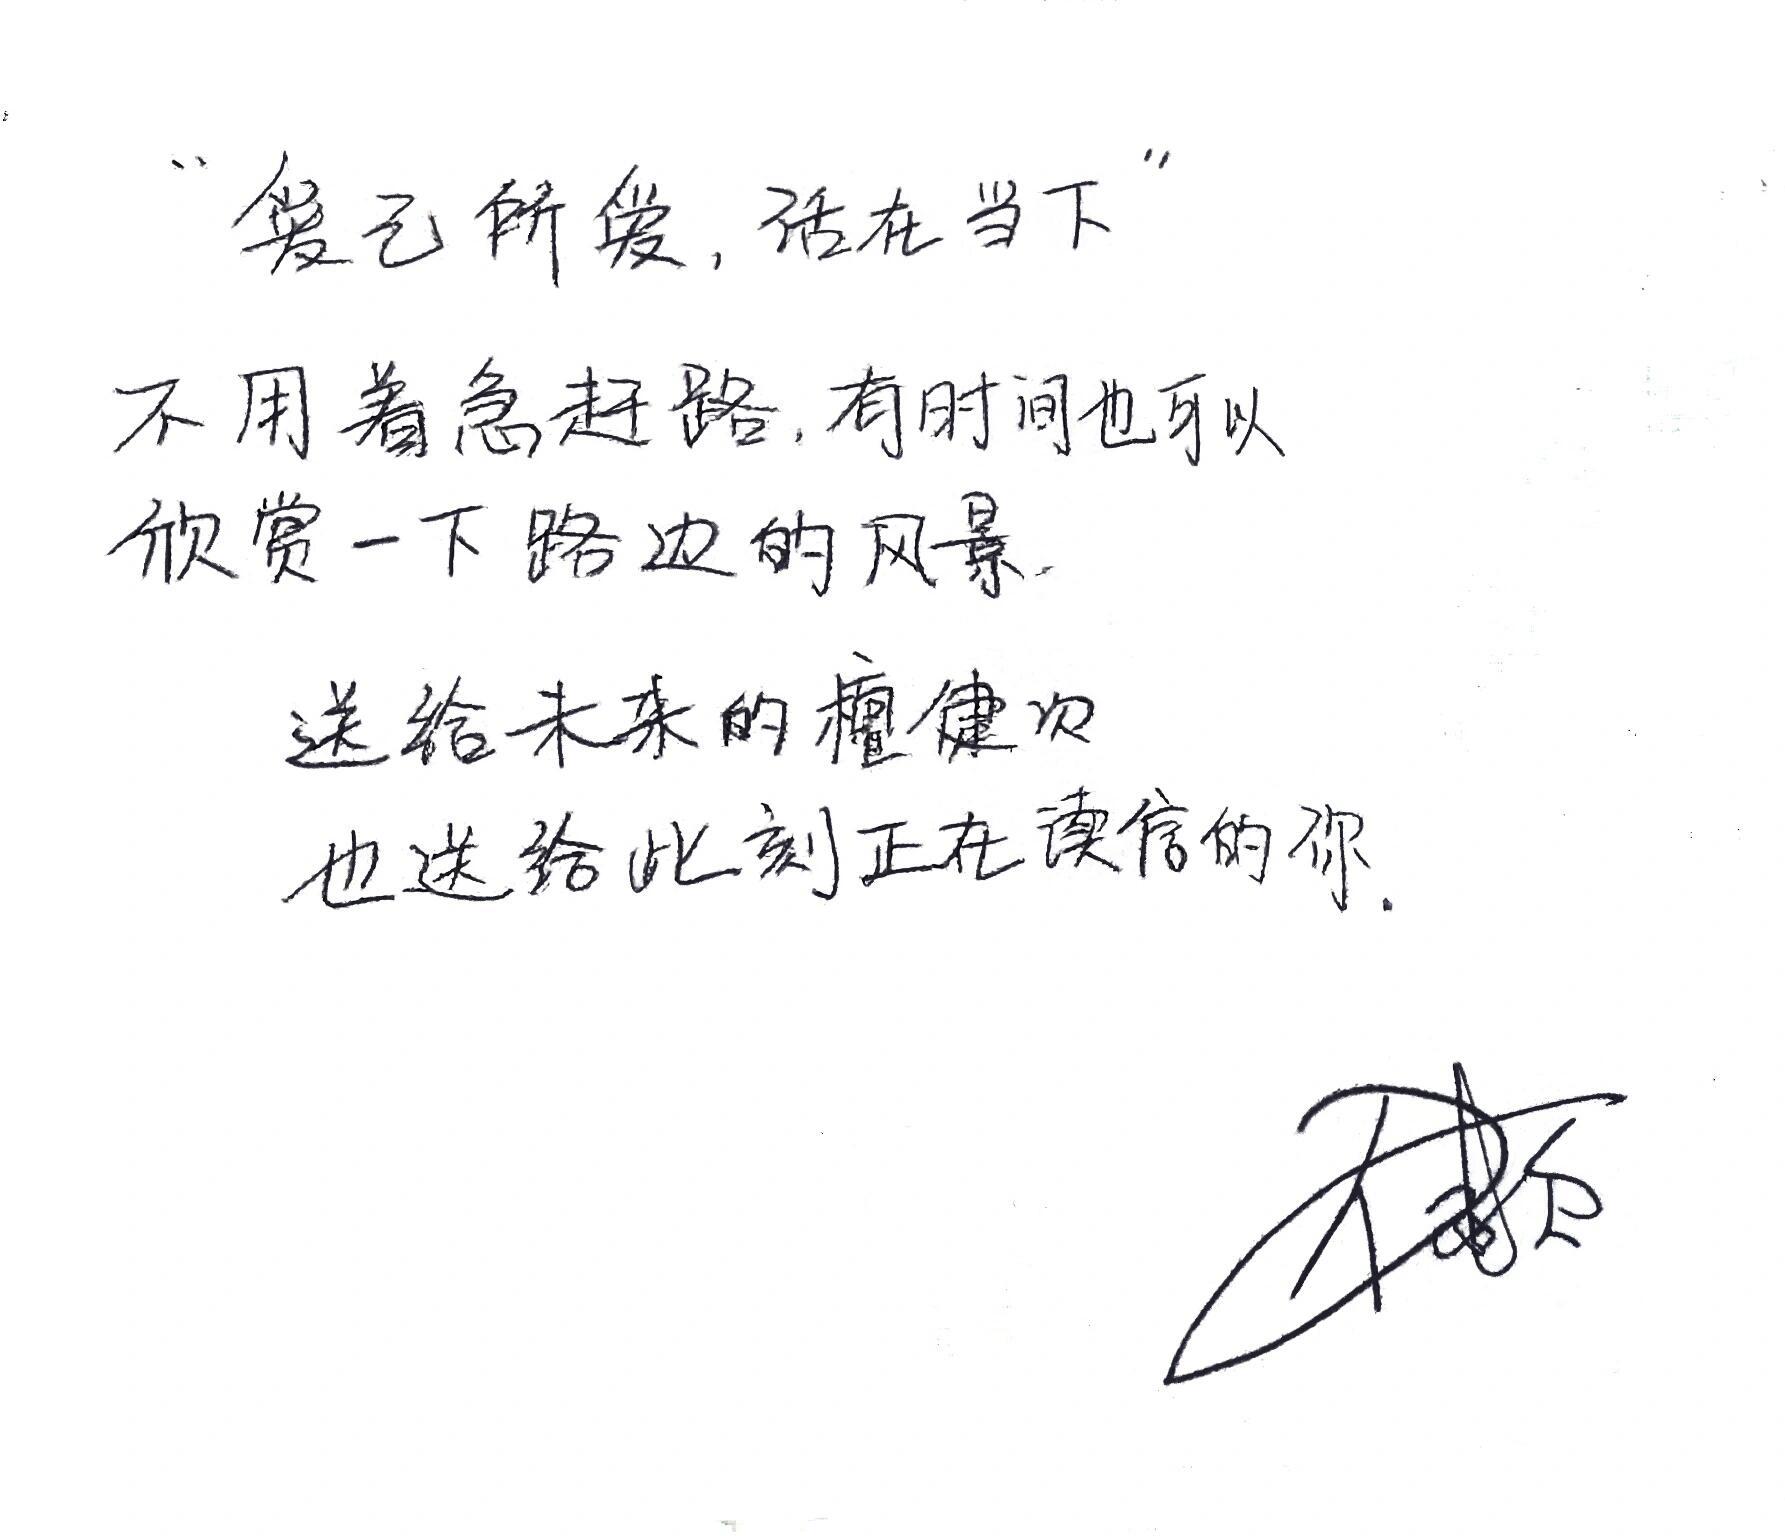 “爱己所爱，活在当下”
不用着急赶路，有时间也可以
欣赏一下路边的风景.
送给未来的檀健次
也送给此刻正在读信的你.